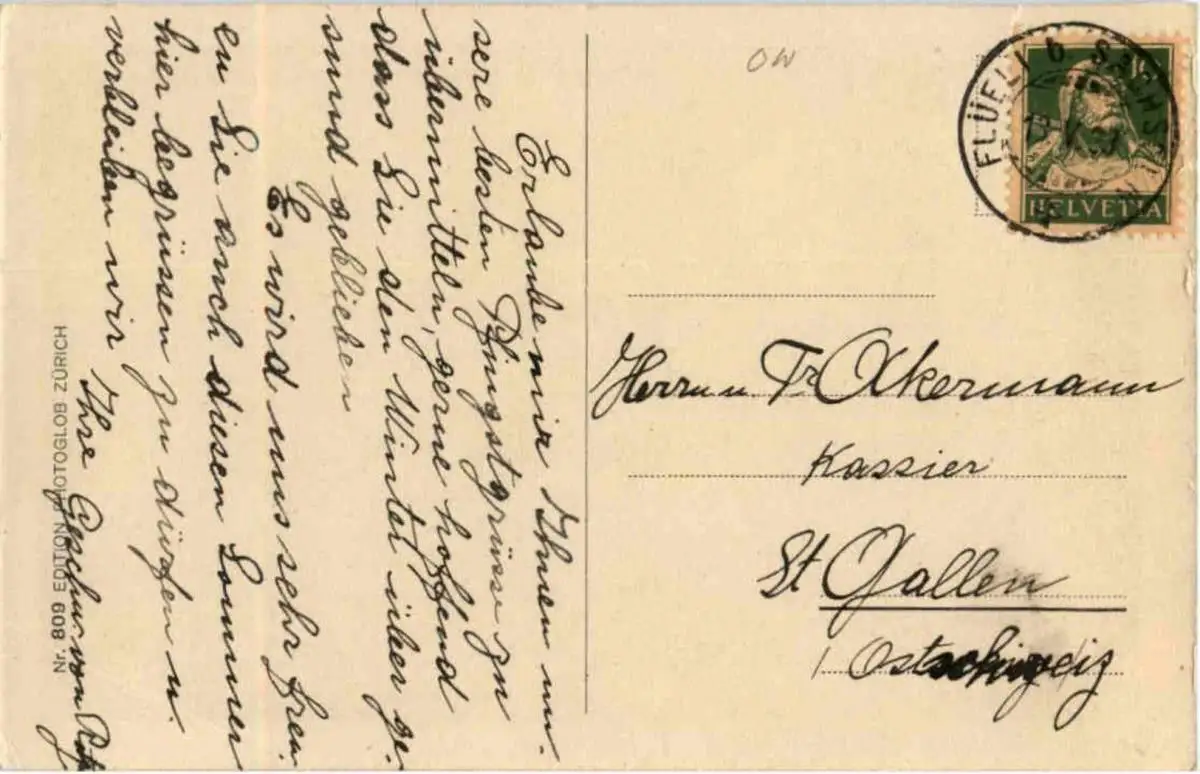 Erlaube mir Ihnen un-
sere besten Pfingstgrüsse zu
übermitteln, gerne hoffend
dass Sie den Winter über ge-
sund geblieben
Es wird uns sehr freu-
en Sie auch diesen Sommer
hier begrüssen zu dürfen u.
verbleiben wir
Ihre Geschw. von Rotz
Nr. 809 EDITION PHOTOGLOB ZÜRICH
OW
FLÜELI b. SACHSELN
HELVETIA
Herrn Fr Akermann
Kassier
St Gallen
Ostschweiz